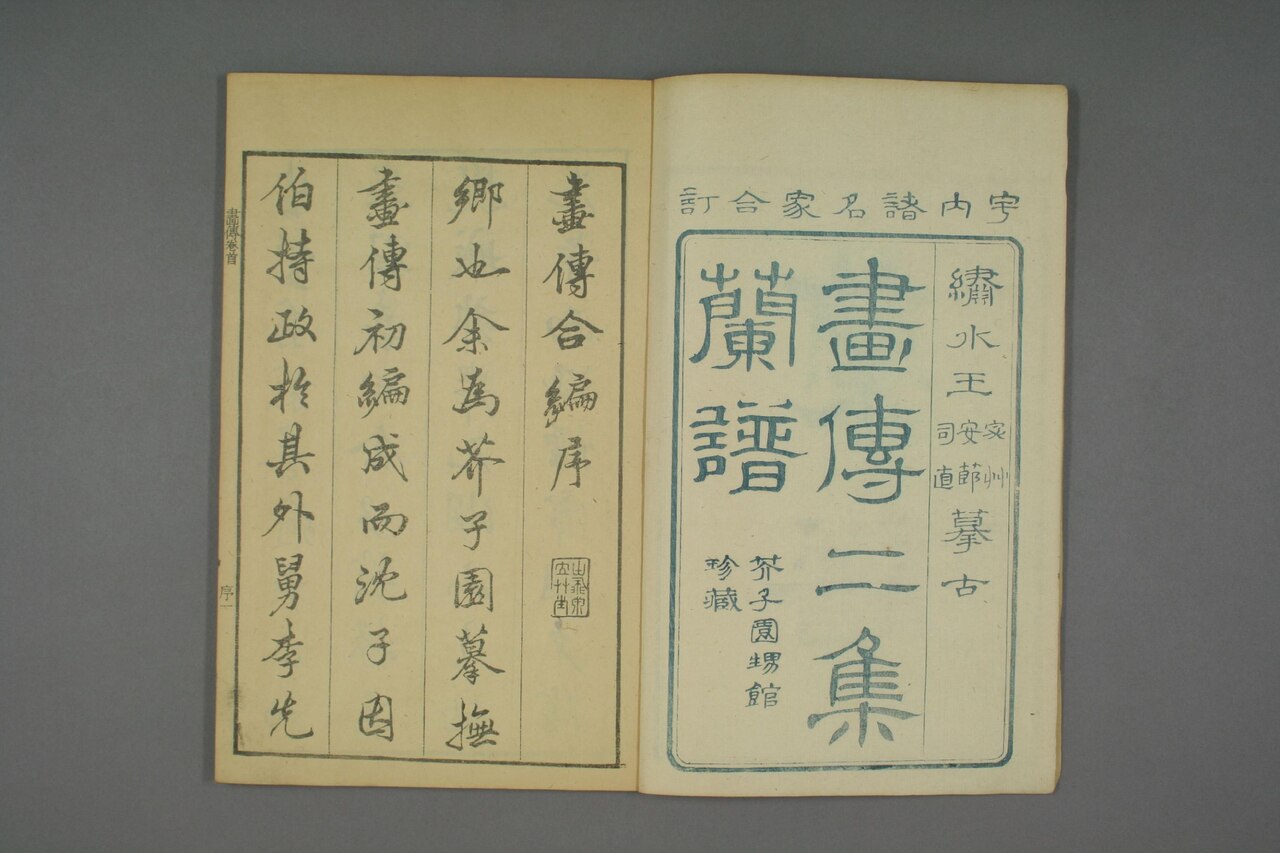 宇内諸名家合訂
繡水王宓艸安節司直摹古
畫傳二集
蘭譜
芥子園甥館
珍藏
畫傳合編序
鄉也余為芥子園摹撫
畫傳初編成而沈子因
伯持政於其外舅李先
畫傳卷首
序一